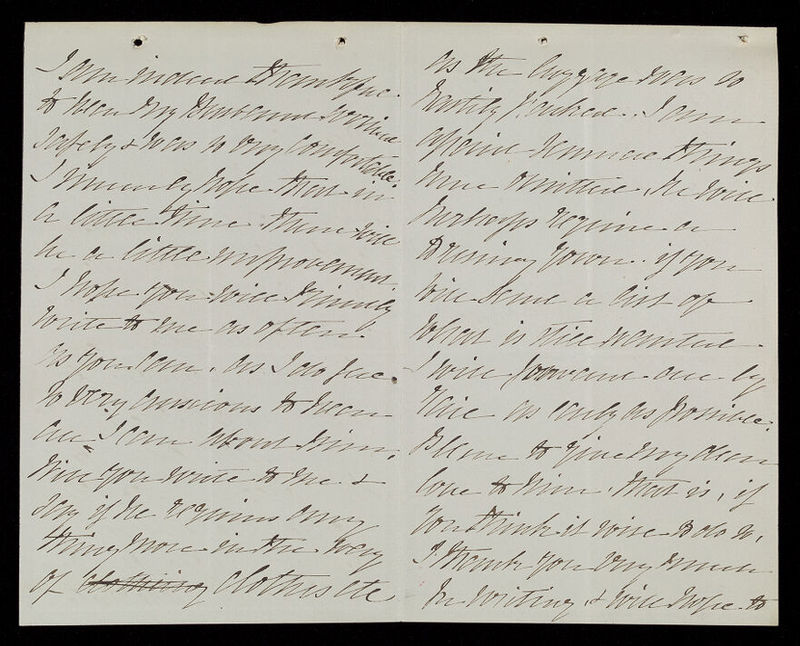 I am indeed thankful
to hear my Husband arrived
safely & was so very comfortable.
I sincerely hope that in
a little time there will
be a little improvement.
I hope you will kindly
write to me as often
as you can, as I do feel
so very anxious to hear
all I can about him,
Will you write to me &
say if he requires any
thing more in the way
of clothing clothes etc
as the luggage was so
hastily packed. I am
afraid several things
were omitted. He will
perhaps require a
Dressing Gown. if you
will send a list of
what is still wanted
I will forward all by
rail as early as possible.
Please to give my dear
love to him, that is, if
you think it wise to do so,
I thank you very much
for writing, & will hope to